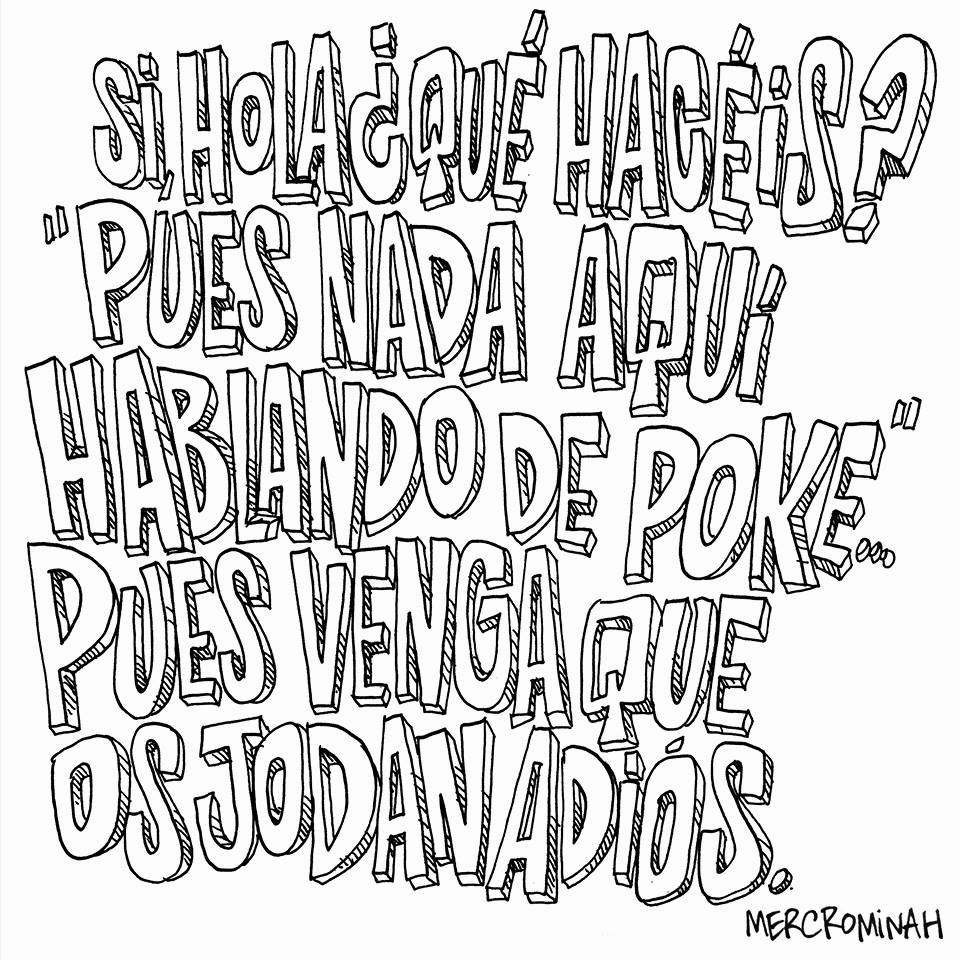 SÍ, HOLA ¿QUÉ HACÉIS?
"PUES NADA AQUÍ
HABLANDO DE POKE..."
PUES VENGA QUE
OS JODAN ADIÓS.
MERCROMINAH